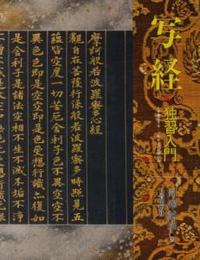 写経
独習入門
摩訶般若波羅蜜多心経
觀自在菩薩行深般若波羅蜜多時照見五
蘊皆空度一切苦厄舎利子色不異空空不
異色色即是空空即是色受想行識亦復如
是舎利子是諸法空相不生不滅不垢不浄